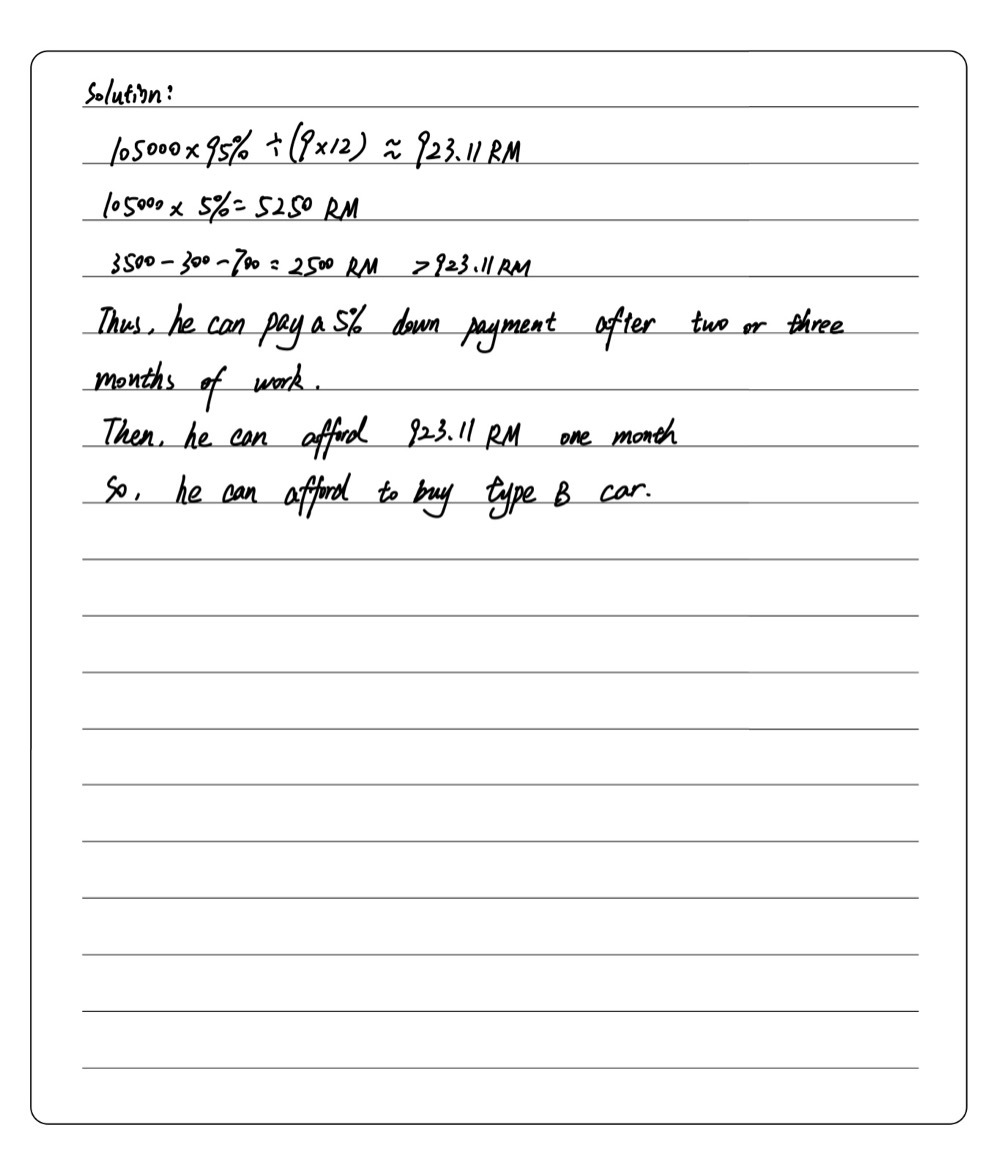 Solution:
105000 × 95% ÷ (9×12) ≈ 923.11 RM
105000 × 5% = 5250 RM
3500 - 300 - 700 = 2500 RM > 923.11 RM
Thus, he can pay a 5% down payment after two or three
months of work.
Then, he can afford 923.11 RM one month
So, he can afford to buy type B car.